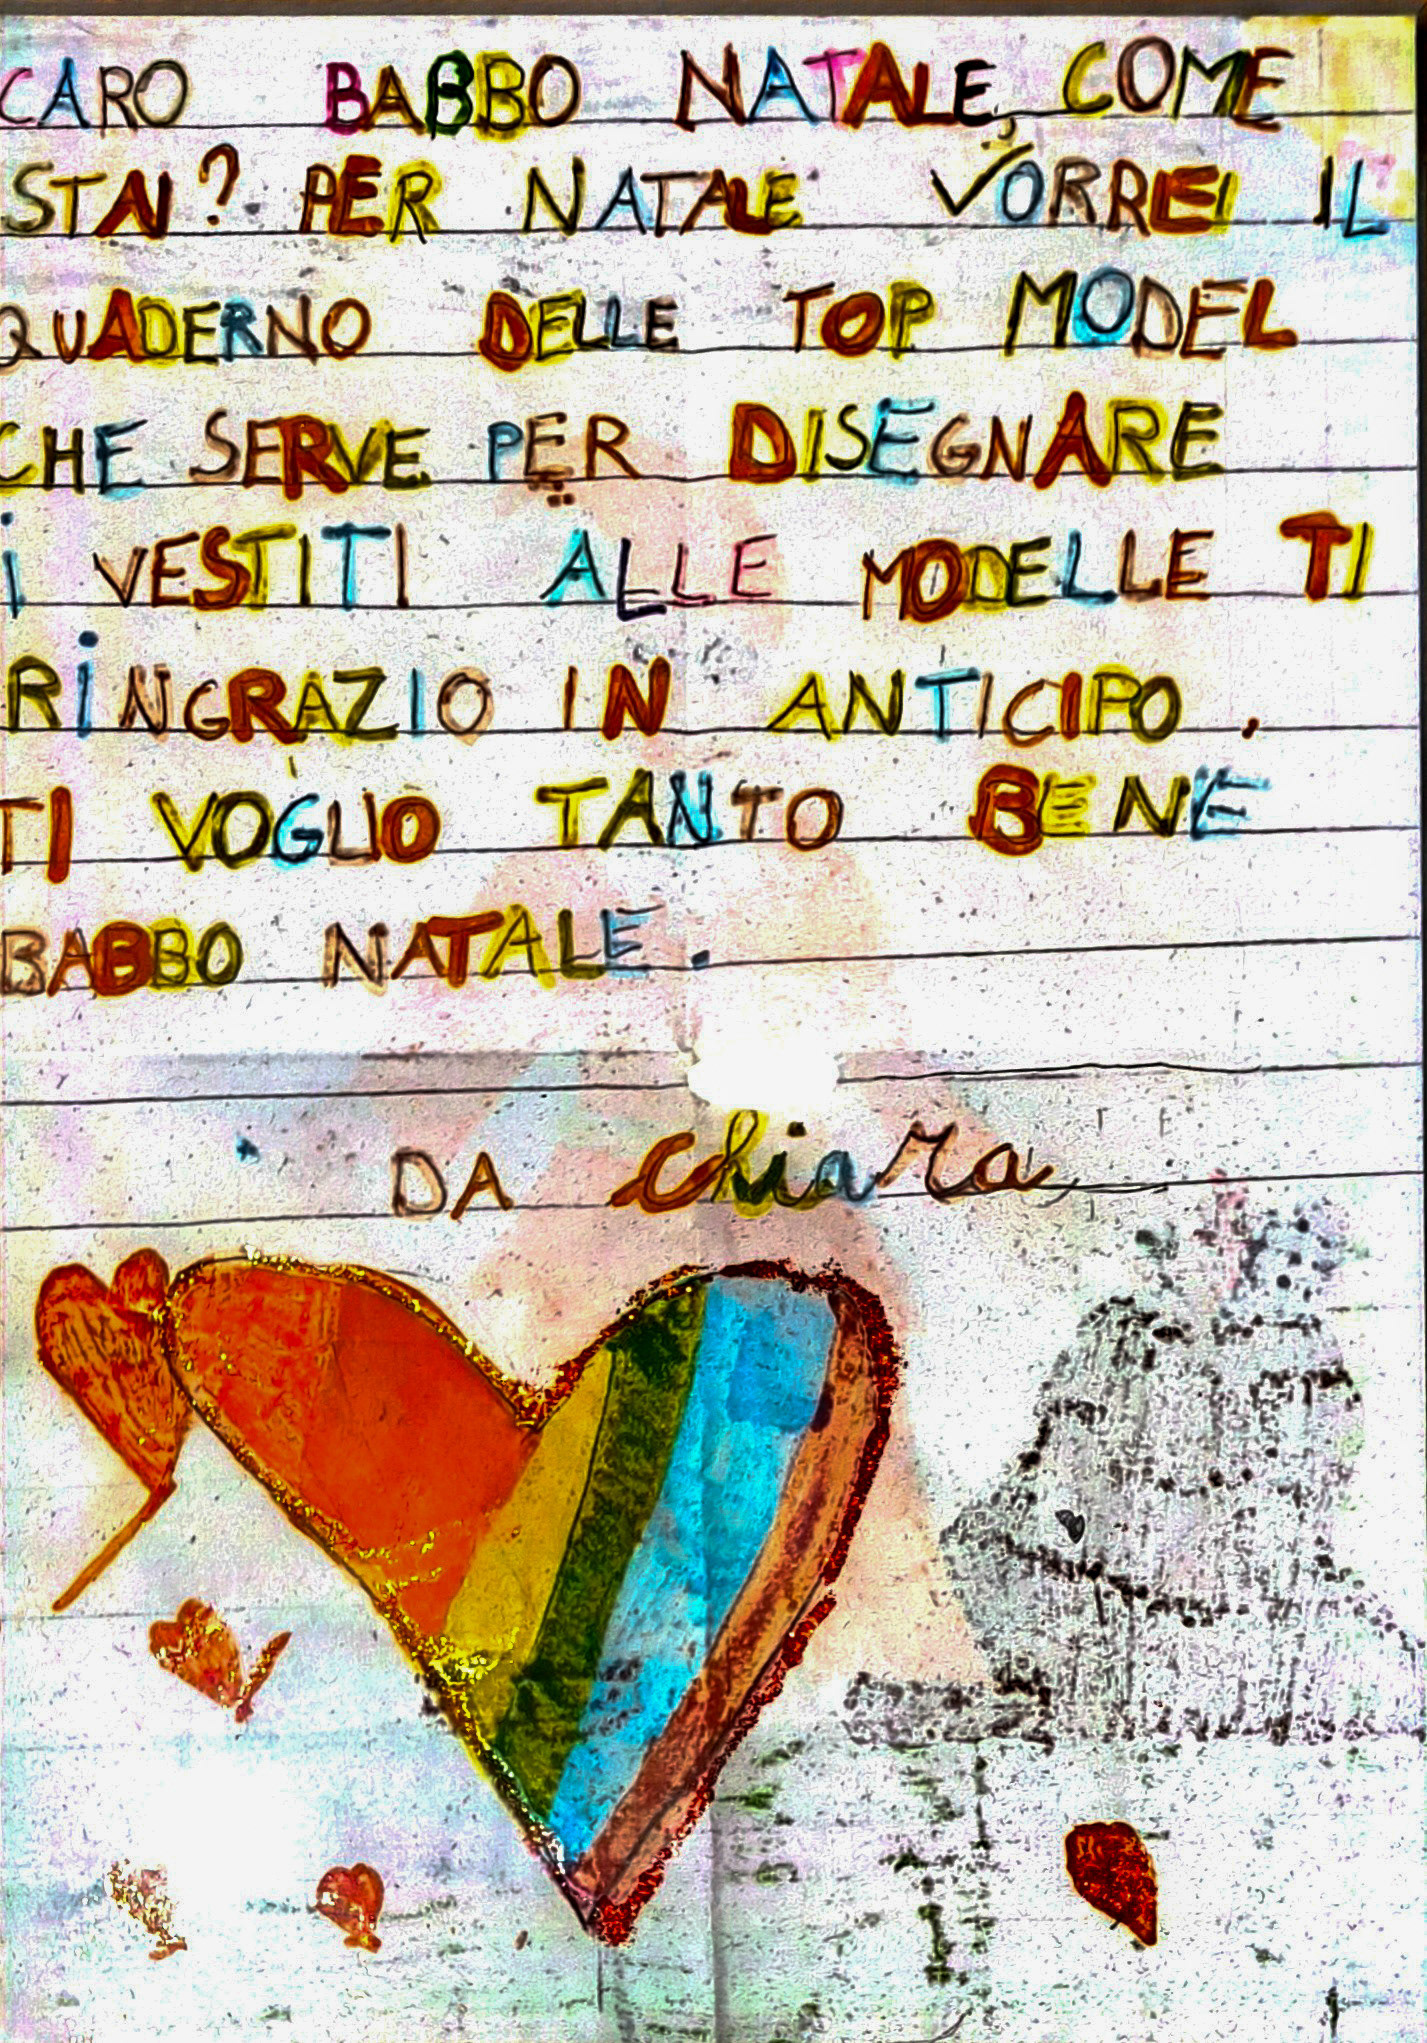 CARO BABBO NATALE, COME
STAI? PER NATALE VORREI IL
QUADERNO DELLE TOP MODEL
CHE SERVE PER DISEGNARE
i VESTITI ALLE MODELLE TI
RiNGRAZIO IN ANTICIPO.
TI VOGLIO TANTO BENE
BABBO NATALE.
DA chiara